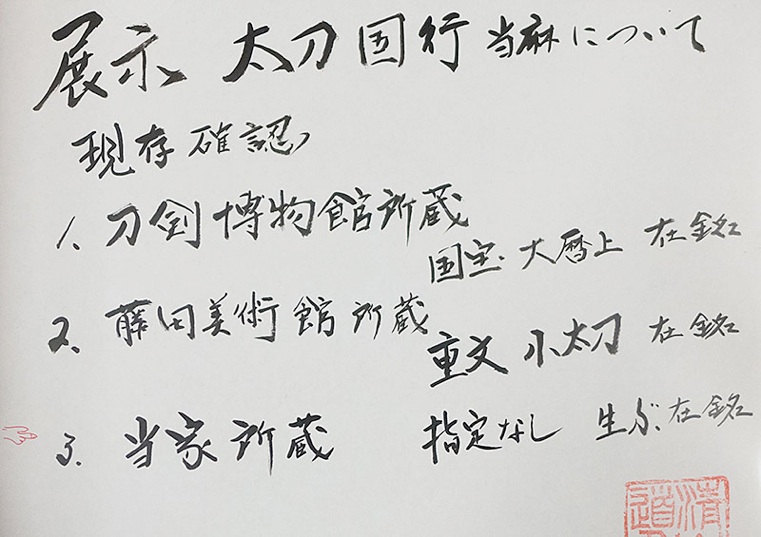 展示 太刀国行 当麻について
現存確認
1、刀剣博物館所蔵
国宝 大暦上 在銘
2、藤田美術館所蔵
重文 小太刀 在銘
3、当家所蔵
指定なし 生ぶ 在銘
清
道